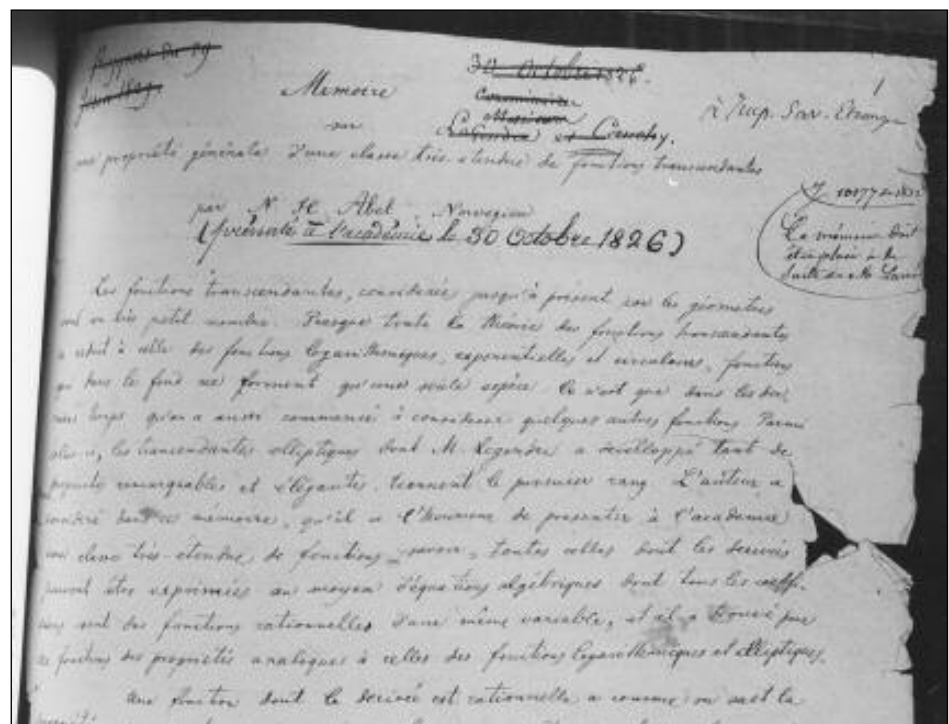 Rapport du 29
juin 1829
30 Octobre 1826.
Commissaires
Messieurs
Legendre et Cauchy.
1
à Imp. Sav. Etrang
Memoire
sur
une propriété générale d'une classe très-étendue de fonctions transcendantes
par N. H. Abel, Norvegien
(présenté à l'académie le 30 Octobre 1826)
Le mémoire doit
être placé à la
suite de M.
Les fonctions transcendantes, considérées jusqu'à présent par les géomètres
sont en très petit nombre. Presque toute la théorie des fonctions transcendantes
se réduit à celle des fonctions logarithmiques, exponentielles et circulaires, fonctions
qui dans le fond ne forment qu'une seule espèce. Ce n'est que dans les der,
niers temps qu'on a aussi commencé à considérer quelques autres fonctions. Parmi
celles-ci, les transcendantes elliptiques dont M. Legendre a développé tant de
propriétés remarquables et élégantes, tiennent le premier rang. L'auteur a
considéré dans ce mémoire, qu'il a l'honneur de presenter à l'academie
une classe très-étendue de fonctions, savoir, toutes celles dont les derivées
peuvent être exprimées au moyen d'équations algébriques dont tous les coeffi-
ciens sont des fonctions rationnelles d'une même variable, et il a trouvé pour
ces fonctions des propriétés analogues à celles des fonctions logarithmiques et elliptiques.
Une fonction dont la derivée est rationnelle a comme on sait la